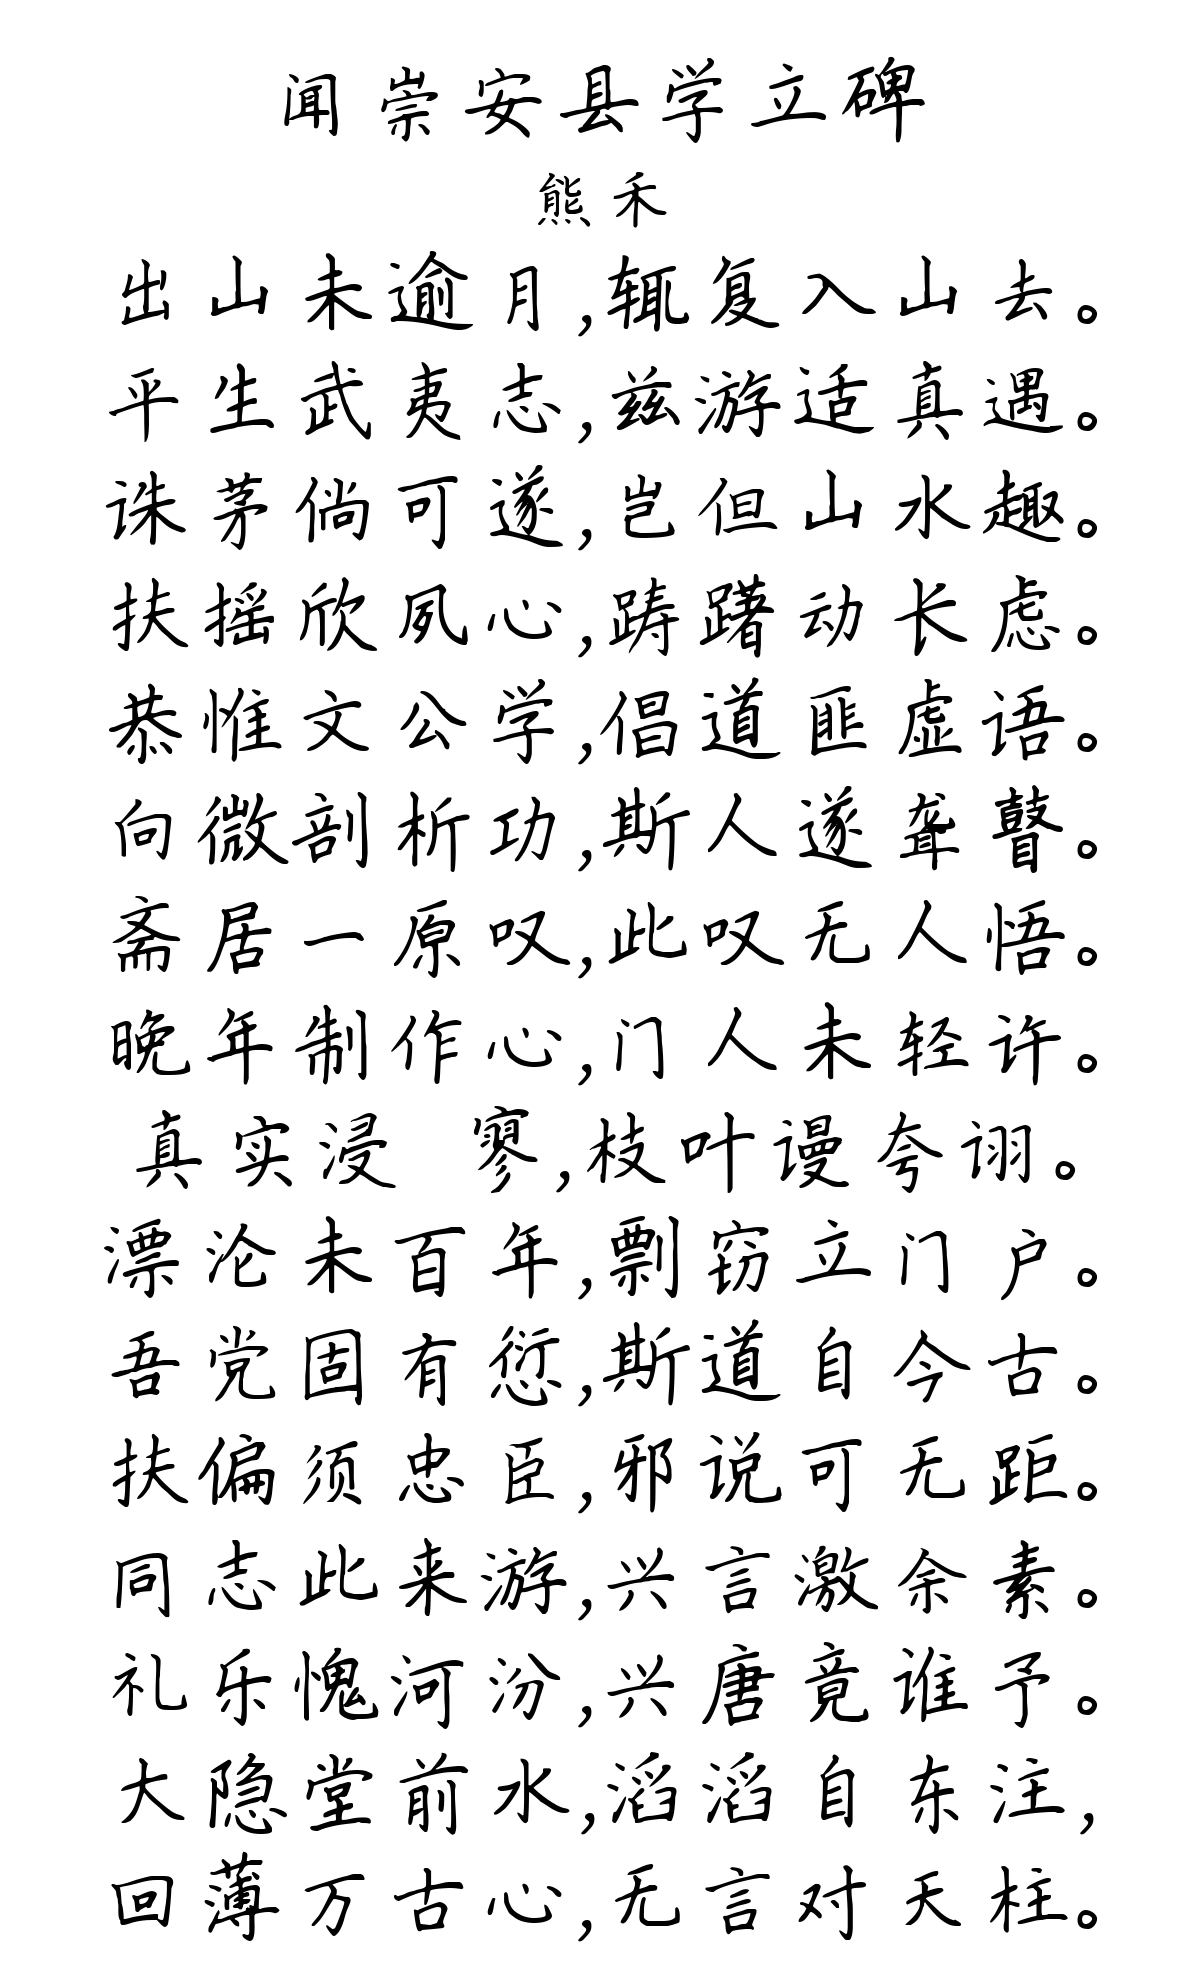 闻崇安县学立碑
熊禾
出山未逾月,辄复入山去。
平生武夷志,兹游适真遇。
诛茅倘可遂,岂但山水趣。
扶摇欣夙心,踌躇动长虑。
恭惟文公学,倡道匪虚语。
向微剖析功,斯人遂聋瞽。
斋居一原叹,此叹无人悟。
晚年制作心,门人未轻许。
真实浸 寥,枝叶谩夸诩。
漂沦未百年,剽窃立门户。
吾党固有愆,斯道自今古。
扶偏须忠臣,邪说可无距。
同志此来游,兴言激余素。
礼乐愧河汾,兴唐竟谁予。
大隐堂前水,滔滔自东注,
回薄万古心,无言对天柱。